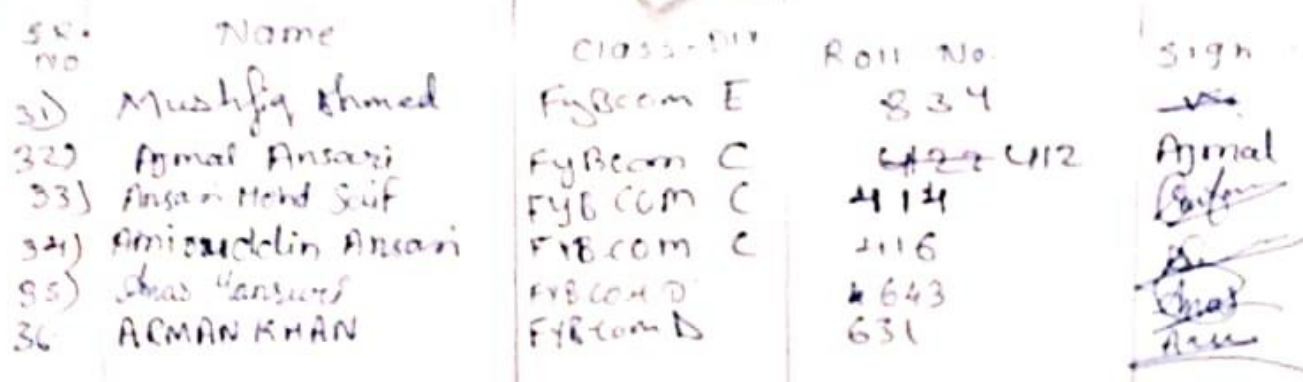 Sr. No Name Class-Div Roll No. Sign
31) Mushfiq Ahmed FyBcom E 834
32) Ajmal Ansari FyBcom C 412 Ajmal
33) Ansari Mohd Saif FYBCOM C 414
34) Amiruddin Ansari FYBcom C 416
35) Anas Mansuri FYBCOM D 643 Anas
36 ARMAN KHAN FYBcom D 631